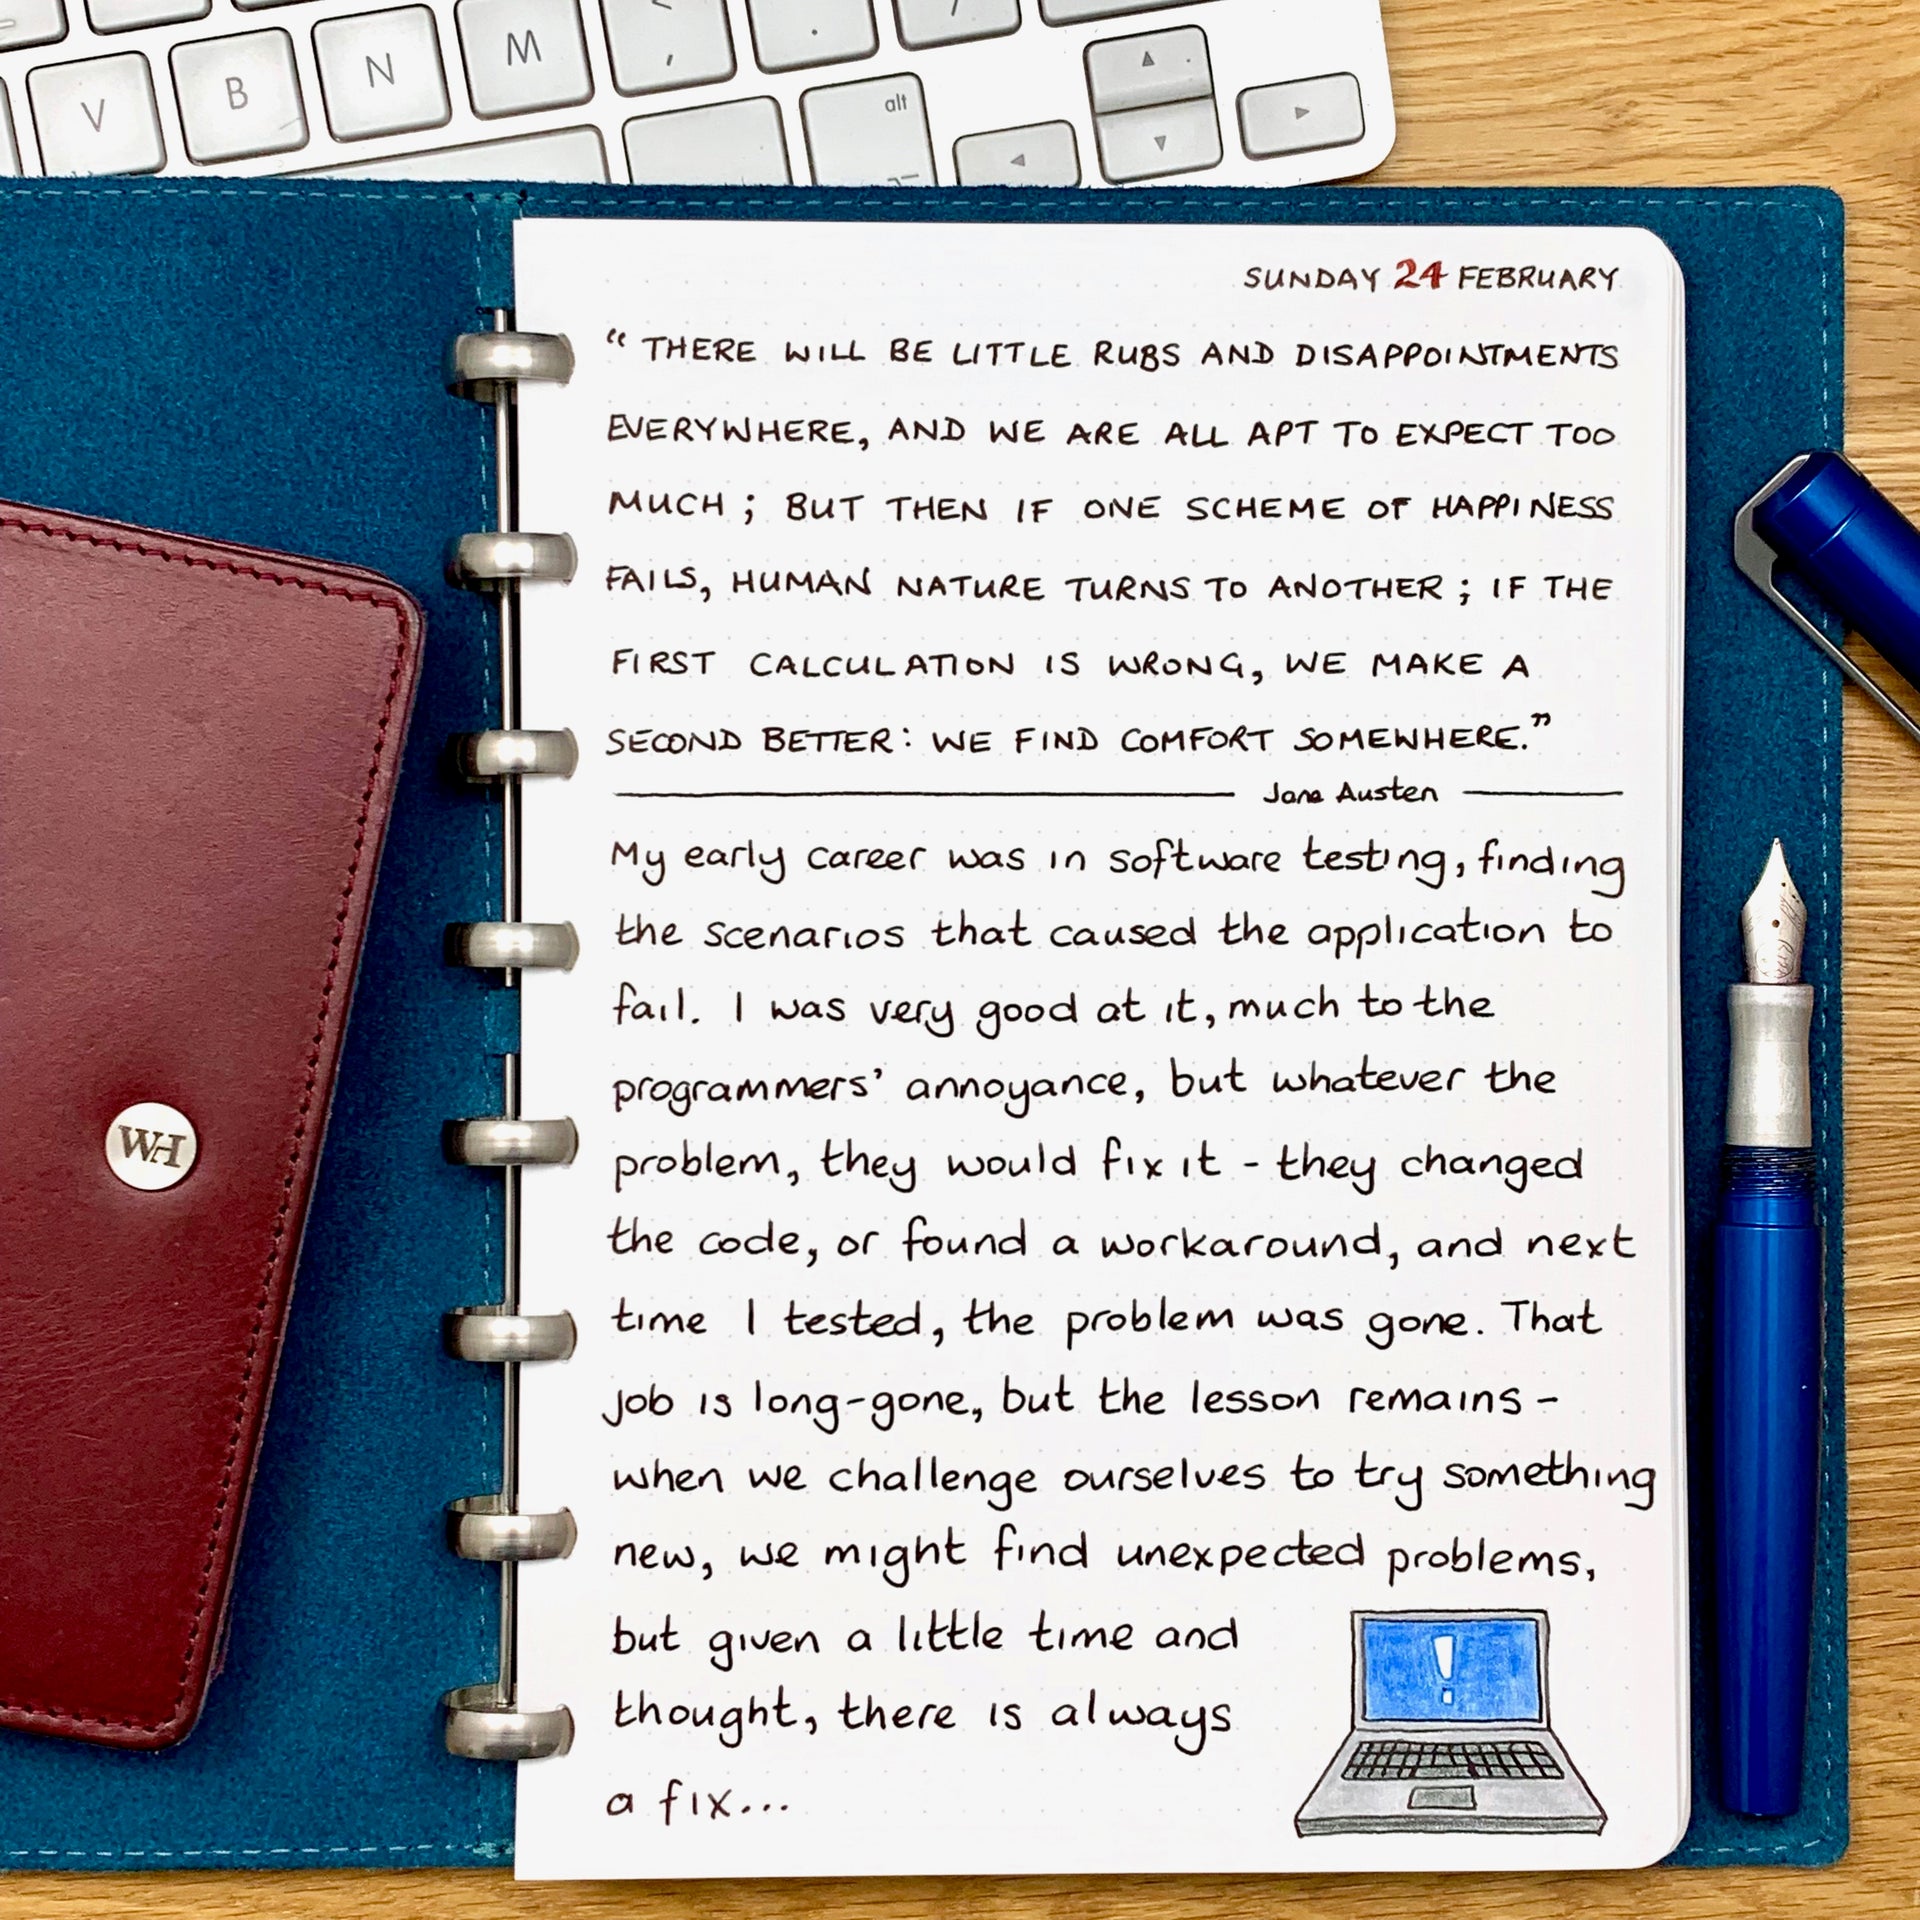 V B N M < , . /
alt
SUNDAY 24 FEBRUARY
“ THERE WILL BE LITTLE RUBS AND DISAPPOINTMENTS
EVERYWHERE, AND WE ARE ALL APT TO EXPECT TOO
MUCH ; BUT THEN IF ONE SCHEME OF HAPPINESS
FAILS, HUMAN NATURE TURNS TO ANOTHER ; IF THE
FIRST CALCULATION IS WRONG, WE MAKE A
SECOND BETTER : WE FIND COMFORT SOMEWHERE.”
Jane Austen
My early career was in software testing, finding
the scenarios that caused the application to
fail. I was very good at it, much to the
programmers’ annoyance, but whatever the
problem, they would fix it - they changed
the code, or found a workaround, and next
time I tested, the problem was gone. That
job is long-gone, but the lesson remains -
when we challenge ourselves to try something
new, we might find unexpected problems,
but given a little time and
thought, there is always
a fix...
!
WH